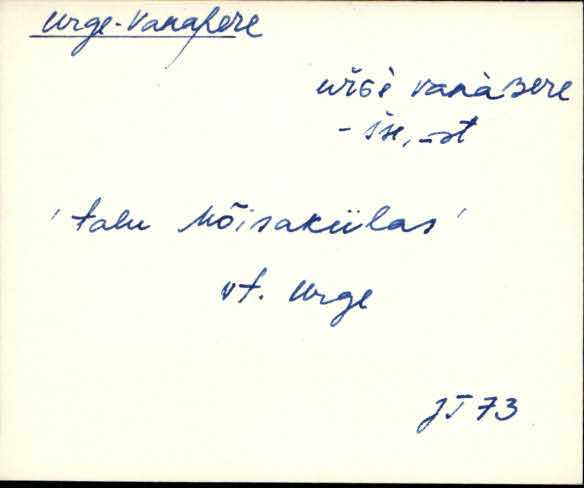 Urge-Vanapere
urGè vanàBere
-st
'talu Mõisakülas'
vt. Urge
JT 73